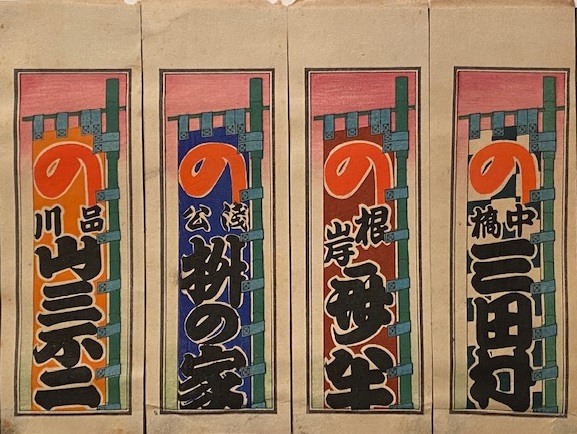 の
中橋
三田村
の
根岸
の
淺公
桝の家
の
品川
山三不二